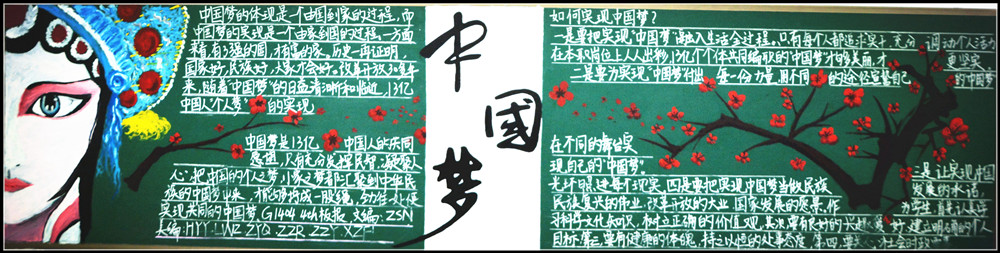 中国梦的体现是一个由国到家的过程，而
中国梦的实现是一个由家到国的过程。一方面
来看，有了强的国，才有富的家。历史一再证明，
国家好，民族好，大家才会好。改革开放30多年
来，随着"中国梦"的日益清晰和临近，13亿
中国人"个人梦"的实现
中国梦是13亿 中国人的共同
愿望，只有充分发挥民邦，凝聚人
心，把中国的个人之梦，小家之梦都汇聚到中华民
族的中国梦中来，拧成一股绳，努力在处使
实现共同的中国梦 G1404 4ch板报 文编：ZSN
美编：HYY LWZ ZYQ ZZR ZZY XZF
中
國
梦
如何实现中国梦？
一是要把实现"中国梦"融入生活全过程。只有每个人都追求实干，充分 调动个人活力
在本职岗位上人人出彩，13亿个个体共同编织的中国梦才够美丽，才 更坚实
二是要为实现"中国梦"付出 每一份力量，用不同 的途径宣誓自己 的"中国梦
在不同的舞台实
现自己的"中国梦"。
三是 让实现中国
发展的 水话
民族复兴的伟业，改革开放的大业，国家发展的愿景，作 为学生 首先认真学
习科学文化知识，树立正确的价值观，其次要有很好的兴趣 爱好，建立明确的个人
目标，第三，要有健康的体魄，持之以恒的处事态度，第四，要 社会时政